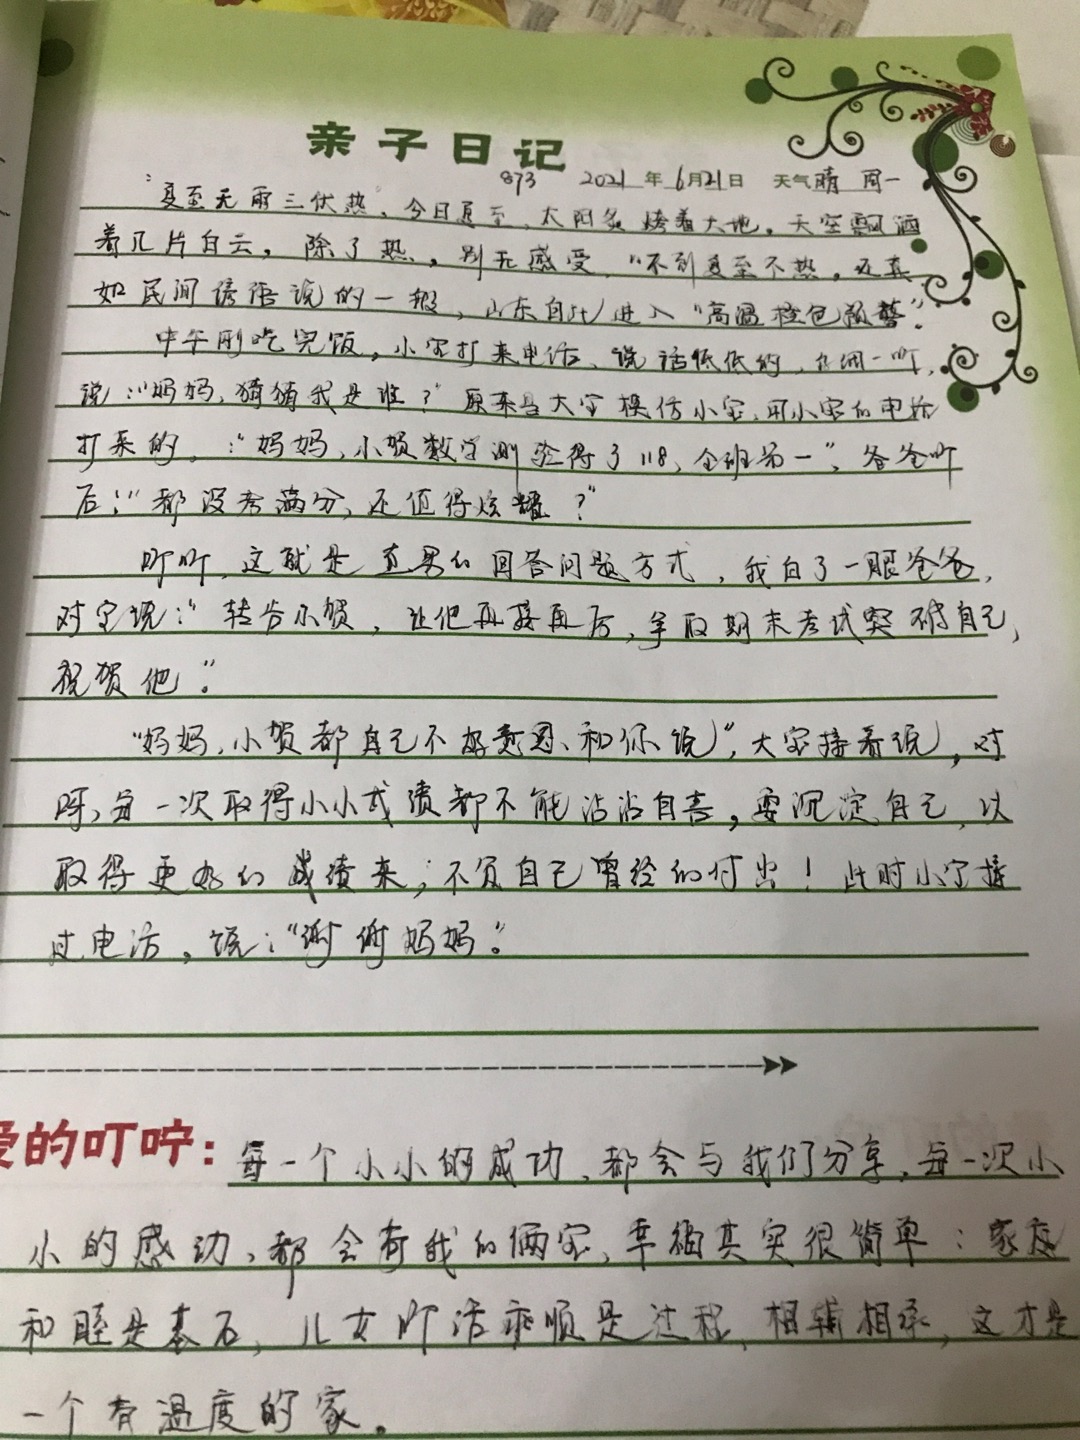 亲子日记
873 2021年6月21日 天气晴 周一
"夏至无雨三伏热,今日夏至,太阳炙烤着大地。天空飘洒
着几片白云,除了热,别无感受,"不到夏至不热,还真
如民间谚语说的一般,山东自北进入"高温橙色预警"。
中午刚吃完饭,小宝打来电话、说话低低的,仔细一听,
说:"妈妈,猜猜我是谁?"原来是大宝模仿小宝,用小宝的电话
打来的。:"妈妈,小贺数学测验得了118,全班第一",爸爸听
后:"都没考满分,还值得炫耀?"
听听,这就是直男的回答问题方式,我白了一眼爸爸,
对宝说:"转告小贺,让他再接再厉,争取期末考试突破自己,
祝贺他"。
"妈妈,小贺都自己不好意思、和你说",大宝接着说,对
呀,每一次取得小小成绩都不能沾沾自喜,要沉淀自己,以
取得更好的成绩来,不负自己曾经的付出!此时小宝接
过电话,说:"谢谢妈妈"。
爱的叮咛:每一个小小的成功、都会与我们分享,每一次小
小的感动、都会有我的俩宝,幸福其实很简单:家庭
和睦是基石,儿女听话乖顺是过程,相辅相承,这才是
一个有温度的家。